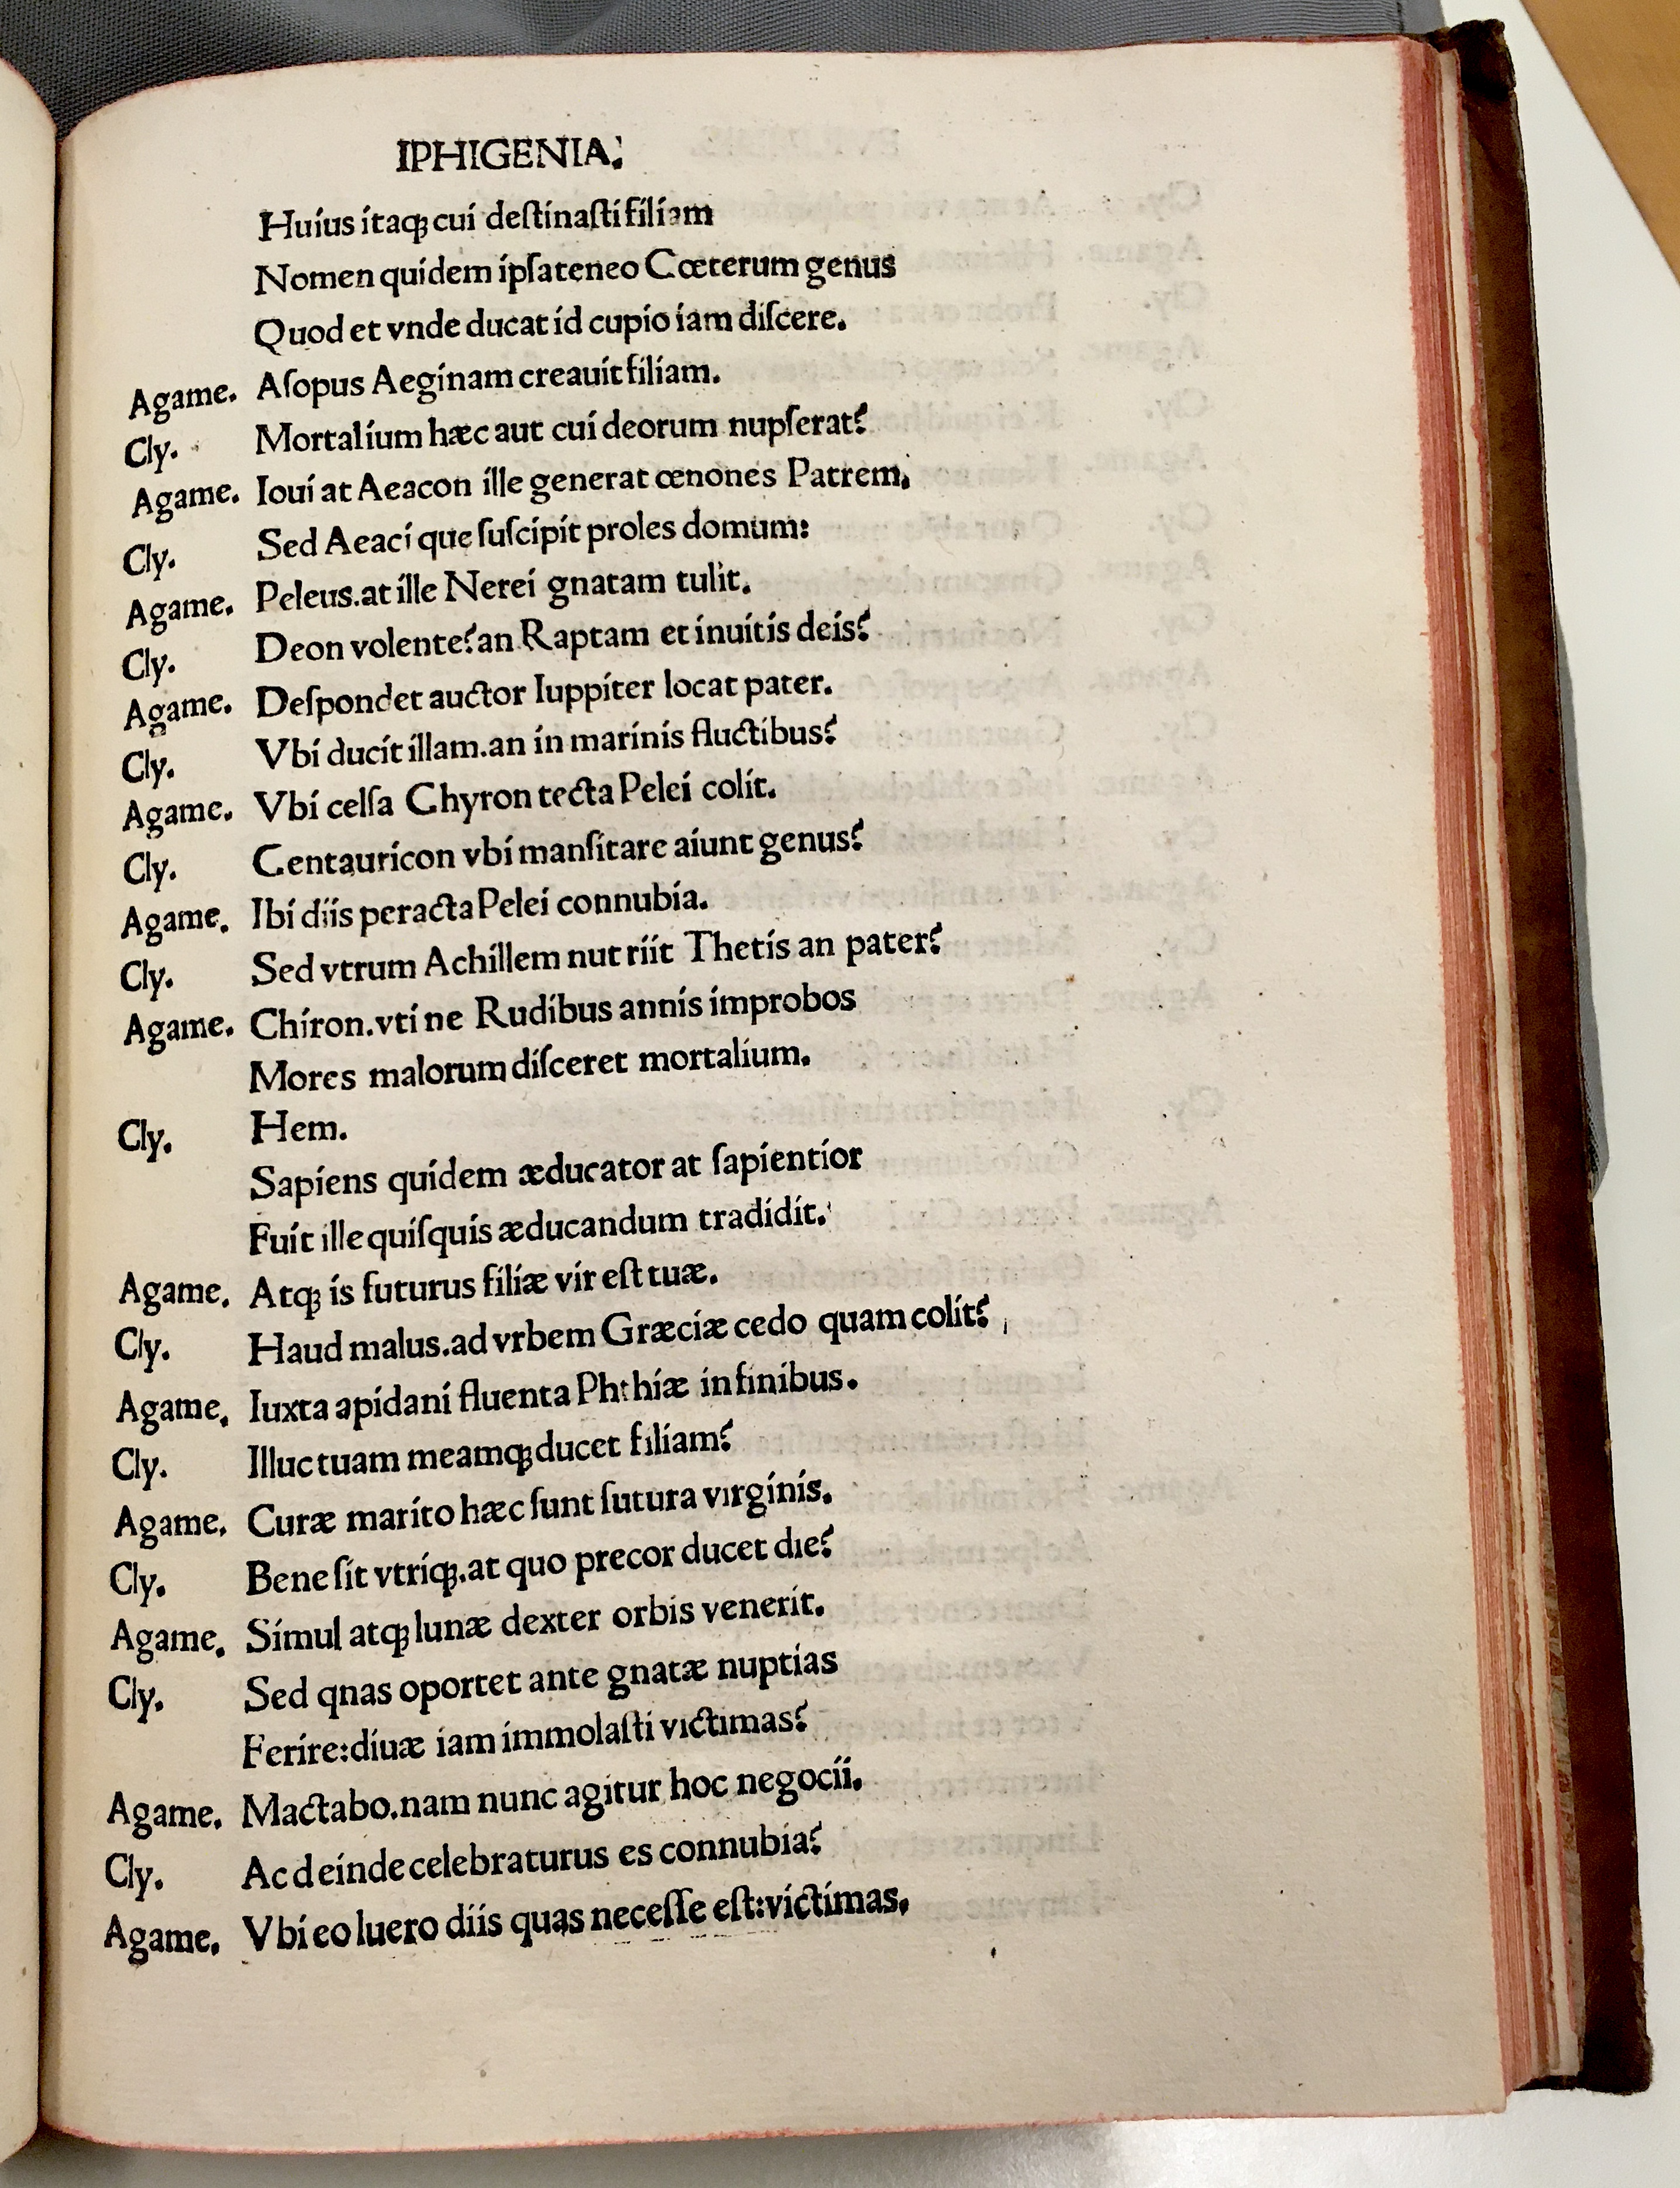 IPHIGENIA.
Huius itaqꝫ cui deſtinaſti filiam
Nomen quidem ipſa teneo Cœterum genus
Quod et vnde ducat id cupio iam diſcere.
Agame. Aſopus Aeginam creauit filiam.
Cly. Mortalium hæc aut cui deorum nupſerat?
Agame. Ioui at Aeacon ille generat œnones Patrem.
Cly. Sed Aeaci que ſuſcipit proles domum:
Agame. Peleus.at ille Nerei gnatam tulit.
Cly. Deon volente?an Raptam et inuitis deis?
Agame. Deſpondet auctor Iuppiter locat pater.
Cly. Vbi ducit illam.an in marinis fluctibus?
Agame. Vbi celſa Chyron tecta Pelei colit.
Cly. Centauricon vbi manſitare aiunt genus?
Agame. Ibi diis peracta Pelei connubia.
Cly. Sed vtrum Achillem nut riit Thetis an pater?
Agame. Chiron.vti ne Rudibus annis improbos
Mores malorum diſceret mortalium.
Cly. Hem.
Sapiens quidem æducator at ſapientior
Fuit ille quiſquis æducandum tradidit.
Agame. Atqꝫ is futurus filiæ vir eſt tuæ.
Cly. Haud malus.ad vrbem Græciæ cedo quam colit?
Agame. Iuxta apidani fluenta Phthiæ in finibus.
Cly. Illuc tuam meamqꝫ ducet filiam?
Agame. Curæ marito hæc ſunt ſutura virginis.
Cly. Bene ſit vtriqꝫ.at quo precor ducet die?
Agame. Simul atqꝫ lunæ dexter orbis venerit.
Cly. Sed qnas oportet ante gnatæ nuptias
Ferire:diuæ iam immolaſti victimas?
Agame. Mactabo.nam nunc agitur hoc negocii.
Cly. Ac deinde celebraturus es connubia?
Agame. Vbi eo luero diis quas neceſſe eſt:victimas.